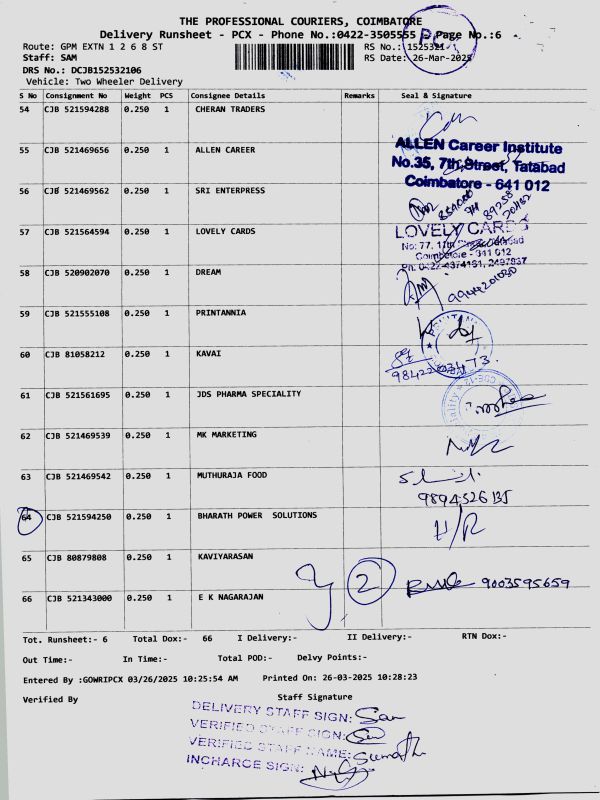 THE PROFESSIONAL COURIERS, COIMBATORE
Delivery Runsheet - PCX - Phone No.:0422-3505555 Page No.:6
Route: GPM EXTN 1 2 6 8 ST
RS No.: 1525321-1
Staff: SAM
RS Date: 26-Mar-2025
DRS No.: DCJB152532106
Vehicle: Two Wheeler Delivery
S No Consignment No Weight PCS Consignee Details Remarks Seal & Signature
54 CJB 521594288 0.250 1 CHERAN TRADERS
55 CJB 521469656 0.250 1 ALLEN CAREER
ALLEN Career Institute
No.35, 7th Street, Tatabad
Coimbatore - 641 012
56 CJB 521469562 0.250 1 SRI ENTERPRESS
57 CJB 521564594 0.250 1 LOVELY CARDS
LOVELY CARDS
No: 77, 11th Street,
Coimbatore - 641 012
Ph: 0422-4374161, 2497837
58 CJB 520902070 0.250 1 DREAM
9944201030
59 CJB 521555108 0.250 1 PRINTANNIA
60 CJB 81058212 0.250 1 KAVAI
61 CJB 521561695 0.250 1 JDS PHARMA SPECIALITY
62 CJB 521469539 0.250 1 MK MARKETING
63 CJB 521469542 0.250 1 MUTHURAJA FOOD
64 CJB 521594250 0.250 1 BHARATH POWER SOLUTIONS
H/R
65 CJB 80879808 0.250 1 KAVIYARASAN
2 9003595659
66 CJB 521343000 0.250 1 E K NAGARAJAN
Tot. Runsheet:- 6 Total Dox:- 66 I Delivery:- II Delivery:- RTN Dox:-
Out Time:- In Time:- Total POD:- Delvy Points:-
Entered By :GOWRIPCX 03/26/2025 10:25:54 AM Printed On: 26-03-2025 10:28:23
Verified By Staff Signature
DELIVERY STAFF SIGN: Sam
VERIFIED STAFF SIGN:
VERIFIED STAFF NAME: Sumathi
INCHARGE SIGN: